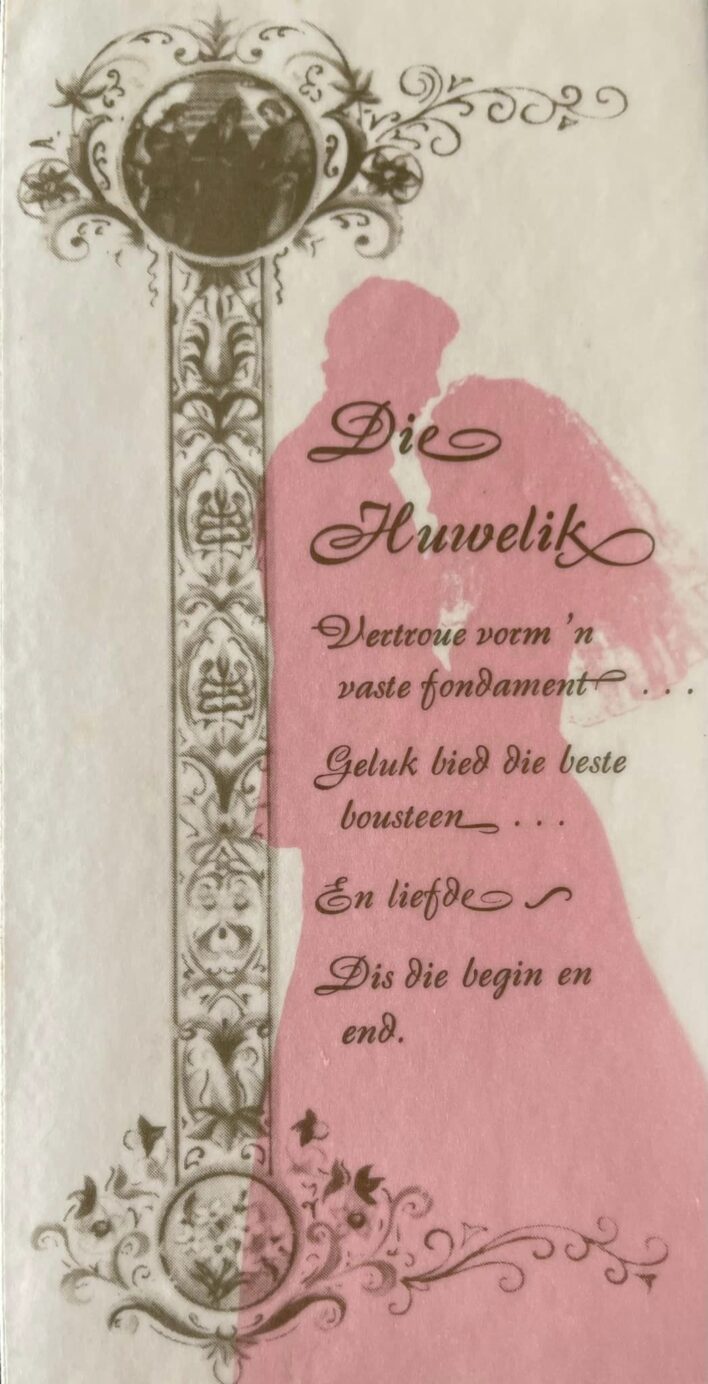 Die
Huwelik
Vertroue vorm 'n
vaste fondament ...
Geluk bied die beste
bousteen ...
En liefde ~
Dis die begin en
end.